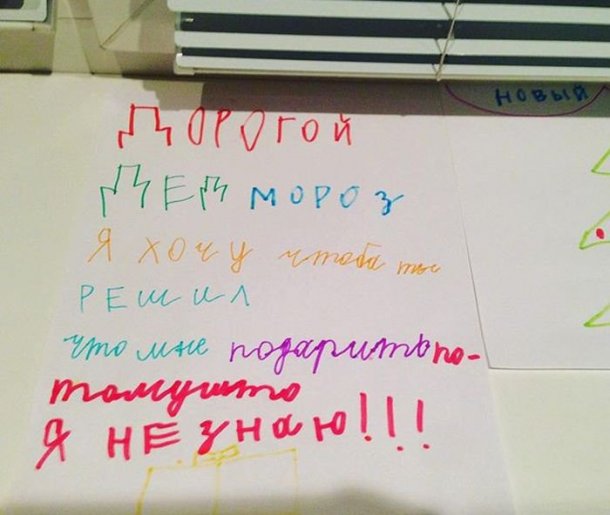 новый
Дорогой
Дед мороз
я хочу чтоба ты
решил
что мне подарить по-
томушто
я не знаю!!!